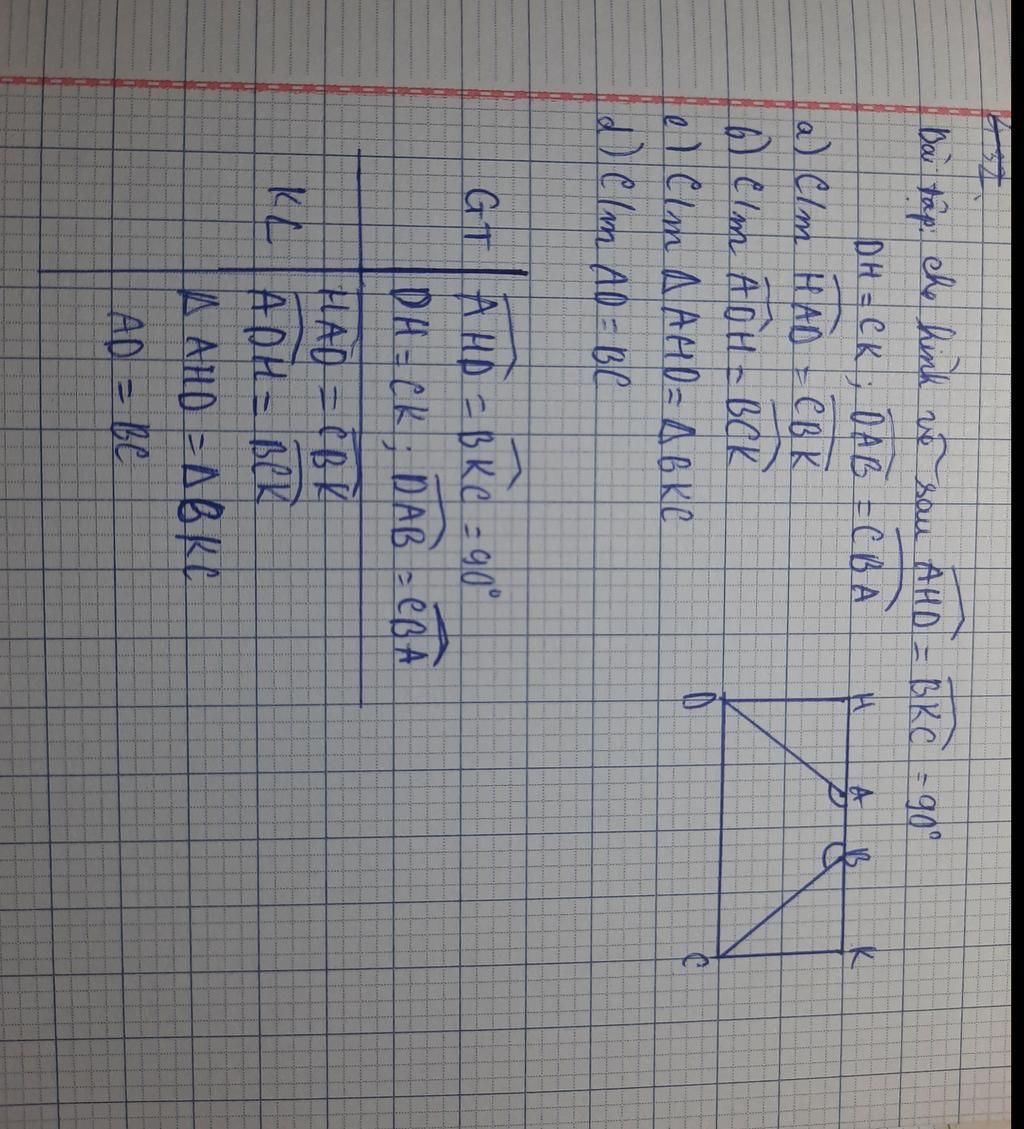 Bài tập: cho hình vẽ sau $\widehat{AHD} = \widehat{BKC} = 90°$
DH = CK ; $\widehat{DAB} = \widehat{CBA}$
a) C/m $\widehat{HAD} = \widehat{CBK}$
b) C/m $\widehat{ADH} = \widehat{BCK}$
c) C/m Δ AHD = Δ BKC
d) C/m AD = BC
H A B K
D C
GT $\widehat{AHD} = \widehat{BKC} = 90°$
DH = CK ; $\widehat{DAB} = \widehat{CBA}$
KL $\widehat{HAD} = \widehat{CBK}$
$\widehat{ADH} = \widehat{BCK}$
Δ AHD = Δ BKC
AD = BC